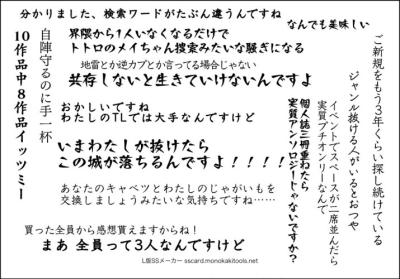 分かりました、検索ワードがたぶん違うんですね
なんでも美味しい
界隈から1人いなくなるだけで
トトロのメイちゃん捜索みたいな騒ぎになる
地雷とか逆カプとか言ってる場合じゃない
共存しないと生きていけないんですよ
おかしいですね
わたしのTLでは大手なんですけど
いまわたしが抜けたら
この城が落ちるんですよ！！！！
あなたのキャベツとわたしのじゃがいもを
交換しましょうみたいな気持ちですね……
買った全員から感想貰えますからね！
まあ 全員って3人なんですけど
ご新規をもう3年くらい探し続けている
ジャンル抜ける人がいるとおつや
イベントでスペースが二席並んだら
実質プチオンリーなんで
個人誌三冊重ねたら
実質アンソロジーじゃないですか？
自陣守るのに手一杯
10作品中8作品イッツミー
L版SSメーカー sscard.monokakitools.net